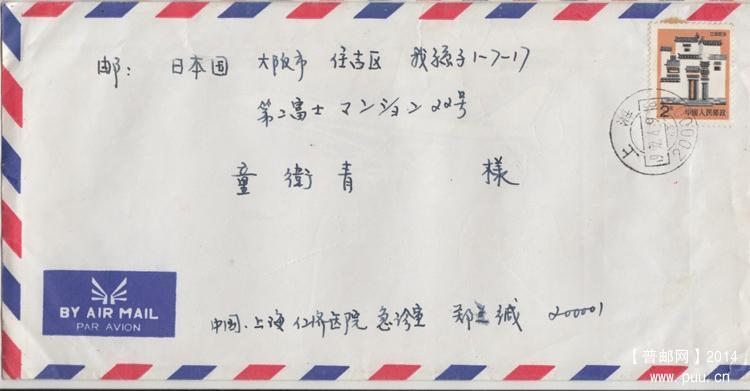 邮: 日本国 大阪市 住吉区 我孫子1-7-17
第二富士マンション22号
童衛青 様
2
中国人民邮政
上海
BY AIR MAIL
PAR AVION
中国.上海仁济医院 急诊室 郑 诚 200001
【普邮网】2014
www.puu.cn